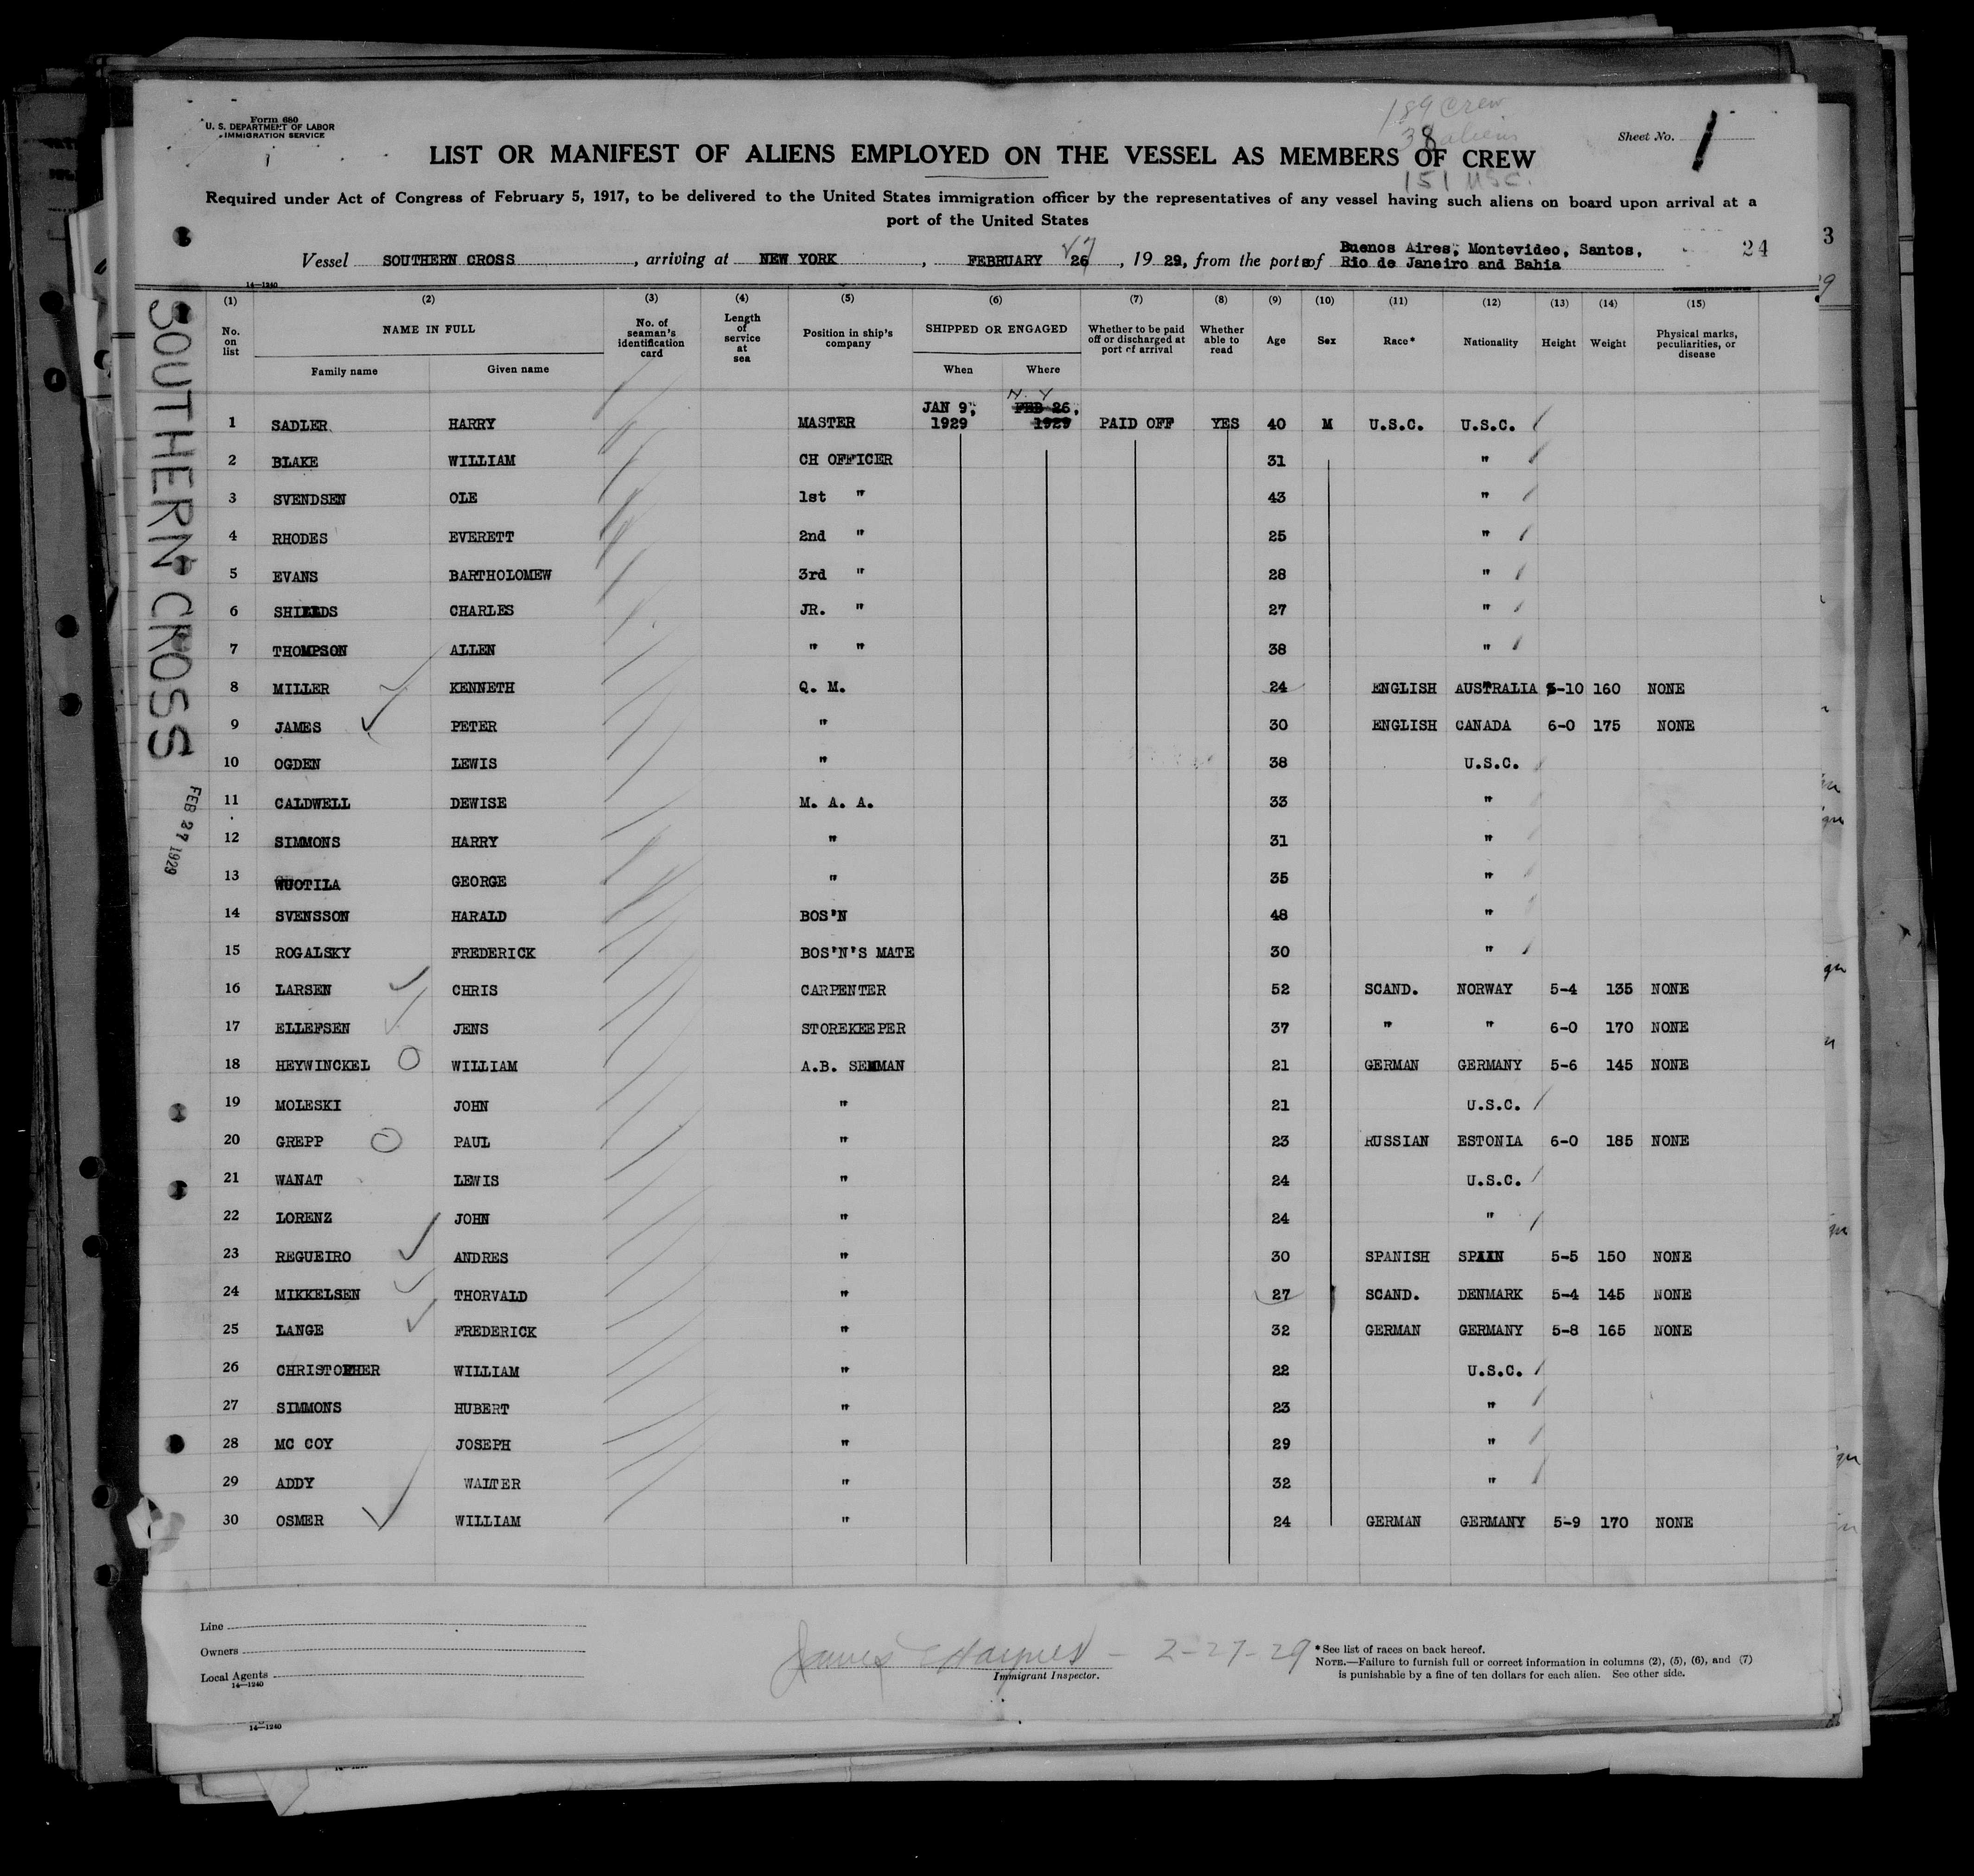 Form 680
U. S. DEPARTMENT OF LABOR
IMMIGRATION SERVICE
189 Crew
38 aliens
151 USC.
Sheet No. 1
LIST OR MANIFEST OF ALIENS EMPLOYED ON THE VESSEL AS MEMBERS OF CREW
Required under Act of Congress of February 5, 1917, to be delivered to the United States immigration officer by the representatives of any vessel having such aliens on board upon arrival at a
port of the United States
Vessel SOUTHERN CROSS, arriving at NEW YORK, FEBRUARY 26 27, 1929, from the ports of Buenos Aires, Montevideo, Santos,
Rio de Janeiro and Bahia
24
3
9
14—1240
SOUTHERN CROSS
FEB 27 1929
(1) (2) (3) (4) (5) (6) (7) (8) (9) (10) (11) (12) (13) (14) (15)
No. on list NAME IN FULL Family name Given name No. of seaman's identification card Length of service at sea Position in ship's company SHIPPED OR ENGAGED When Where Whether to be paid off or discharged at port of arrival Whether able to read Age Sex Race* Nationality Height Weight Physical marks, peculiarities, or disease
N. Y
JAN 9, FEB 26,
1 SADLER HARRY MASTER 1929 1929 PAID OFF YES 40 M U.S.C. U.S.C.
2 BLAKE WILLIAM CH OFFICER 31 "
3 SVENDSEN OLE 1st " 43 "
4 RHODES EVERETT 2nd " 25 "
5 EVANS BARTHOLOMEW 3rd " 28 "
6 SHIELDS CHARLES JR. " 27 "
7 THOMPSON ALLEN " " 38 "
8 MILLER KENNETH Q. M. 24 ENGLISH AUSTRALIA 5-10 160 NONE
9 JAMES PETER " 30 ENGLISH CANADA 6-0 175 NONE
10 OGDEN LEWIS " 38 U.S.C.
11 CALDWELL DEWISE M. A. A. 33 "
12 SIMMONS HARRY " 31 "
13 WUOTILA GEORGE " 35 "
14 SVENSSON HARALD BOS'N 48 "
15 ROGALSKY FREDERICK BOS'N'S MATE 30 "
16 LARSEN CHRIS CARPENTER 52 SCAND. NORWAY 5-4 135 NONE
17 ELLEFSEN JENS STOREKEEPER 37 " " 6-0 170 NONE
18 HEYWINCKEL WILLIAM A.B. SEMMAN 21 GERMAN GERMANY 5-6 145 NONE
19 MOLESKI JOHN " 21 U.S.C.
20 GREPP PAUL " 23 RUSSIAN ESTONIA 6-0 185 NONE
21 WANAT LEWIS " 24 U.S.C.
22 LORENZ JOHN " 24 "
23 REGUEIRO ANDRES " 30 SPANISH SPAIN 5-5 150 NONE
24 MIKKELSEN THORVALD " 27 SCAND. DENMARK 5-4 145 NONE
25 LANGE FREDERICK " 32 GERMAN GERMANY 5-8 165 NONE
26 CHRISTOPHER WILLIAM " 22 U.S.C.
27 SIMMONS HUBERT " 23 "
28 MC COY JOSEPH " 29 "
29 ADDY WALTER " 32 "
30 OSMER WILLIAM " 24 GERMAN GERMANY 5-9 170 NONE
Line
Owners
Local Agents
14—1240
James E Haynes - 2-27-29
Immigrant Inspector.
*See list of races on back hereof.
NOTE.—Failure to furnish full or correct information in columns (2), (5), (6), and (7)
is punishable by a fine of ten dollars for each alien. See other side.
14—1240